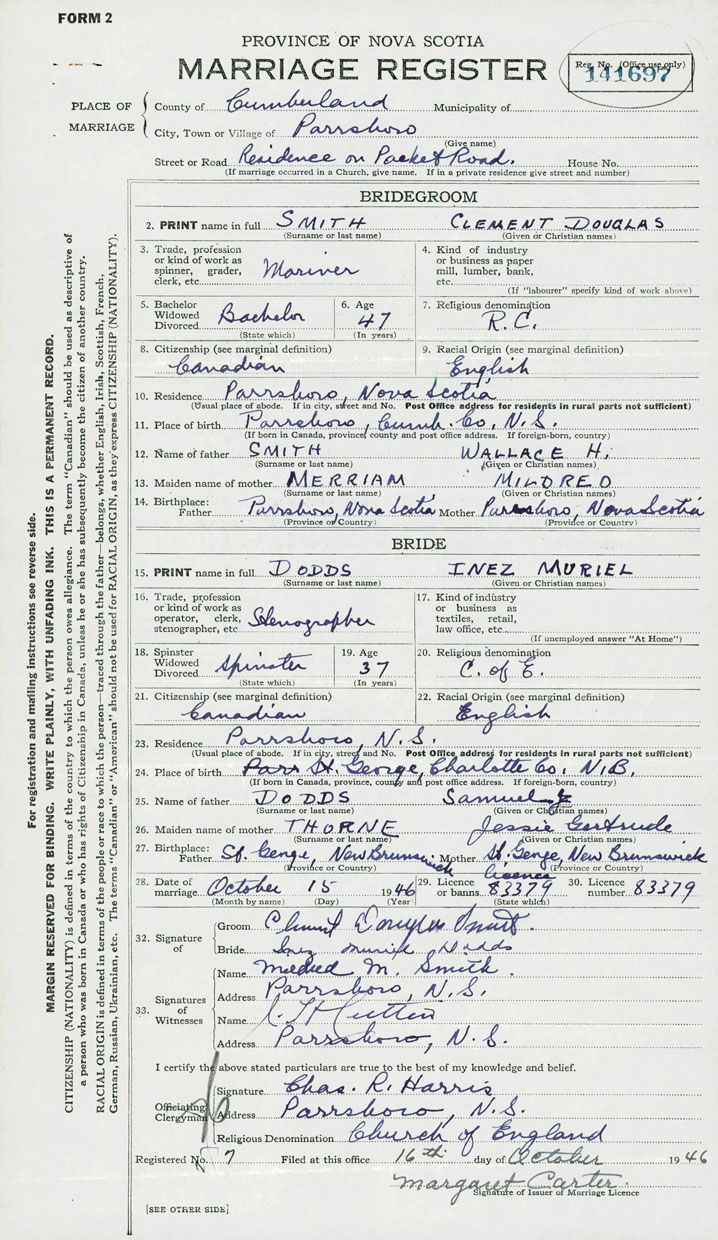 FORM 2
PROVINCE OF NOVA SCOTIA
MARRIAGE REGISTER
Reg. No. (Office use only)
141697
PLACE OF MARRIAGE
County of Cumberland Municipality of
City, Town or Village of Parrsboro
(Give name)
Street or Road Residence on Packet Road. House No.
(If marriage occurred in a Church, give name. If in a private residence give street and number)
BRIDEGROOM
2. PRINT name in full SMITH CLEMENT DOUGLAS
(Surname or last name) (Given or Christian names)
3. Trade, profession or kind of work as spinner, grader, clerk, etc. Mariner
4. Kind of industry or business as paper mill, lumber, bank, etc.
(If "labourer" specify kind of work above)
5. Bachelor Widowed Divorced Bachelor
(State which)
6. Age 47
(In years)
7. Religious denomination
R.C.
8. Citizenship (see marginal definition)
Canadian
9. Racial Origin (see marginal definition)
English
10. Residence Parrsboro, Nova Scotia
(Usual place of abode. If in city, street and No. Post Office address for residents in rural parts not sufficient)
11. Place of birth Parrsboro, Cumb. Co, N.S.
(If born in Canada, province, county and post office address. If foreign-born, country)
12. Name of father SMITH WALLACE H.
(Surname or last name) (Given or Christian names)
13. Maiden name of mother MERRIAM MILDRED
(Surname or last name) (Given or Christian names)
14. Birthplace: Father Parrsboro, Nova Scotia Mother Parrsboro, Nova Scotia
(Province or Country) (Province or Country)
BRIDE
15. PRINT name in full DODDS INEZ MURIEL
(Surname or last name) (Given or Christian names)
16. Trade, profession or kind of work as operator, clerk, stenographer, etc. Stenographer
17. Kind of industry or business as textiles, retail, law office, etc.
(If unemployed answer "At Home")
18. Spinster Widowed Divorced Spinster
(State which)
19. Age 37
(In years)
20. Religious denomination
C. of E.
21. Citizenship (see marginal definition)
Canadian
22. Racial Origin (see marginal definition)
English
23. Residence Parrsboro, N.S.
(Usual place of abode. If in city, street and No. Post Office address for residents in rural parts not sufficient)
24. Place of birth St. George, Charlotte Co, N.B.
(If born in Canada, province, county and post office address. If foreign-born, country)
25. Name of father DODDS Samuel
(Surname or last name) (Given or Christian names)
26. Maiden name of mother THORNE Jessie Gertrude
(Surname or last name) (Given or Christian names)
27. Birthplace: Father St. George, New Brunswick Mother St. George, New Brunswick
(Province or Country) (Province or Country)
28. Date of marriage October 15 1946
(Month by name) (Day) (Year)
29. Licence or banns licence 83379
(State which)
30. Licence number 83379
32. Signature of
Groom Clement Douglas Smith.
Bride Inez Muriel Dodds
33. Signatures of Witnesses
Name Mildred M. Smith.
Address Parrsboro, N.S.
Name
Address Parrsboro, N.S.
I certify the above stated particulars are true to the best of my knowledge and belief.
Officiating Clergyman
Signature Chas. R. Harris
Address Parrsboro, N.S.
Religious Denomination Church of England
Registered No. 7 Filed at this office 16th day of October 1946
Margaret Carter.
Signature of Issuer of Marriage Licence
[SEE OTHER SIDE]
For registration and mailing instructions see reverse side.
MARGIN RESERVED FOR BINDING. WRITE PLAINLY, WITH UNFADING INK. THIS IS A PERMANENT RECORD.
CITIZENSHIP (NATIONALITY) is defined in terms of the country to which the person owes allegiance. The term "Canadian" should be used as descriptive of
a person who was born in Canada or who has rights of Citizenship in Canada, unless he or she has subsequently become the citizen of another country.
RACIAL ORIGIN is defined in terms of the people or race to which the person—traced through the father—belongs, whether English, Irish, Scottish, French,
German, Russian, Ukrainian, etc. The terms "Canadian" or "American" should not be used for RACIAL ORIGIN, as they express CITIZENSHIP (NATIONALITY).